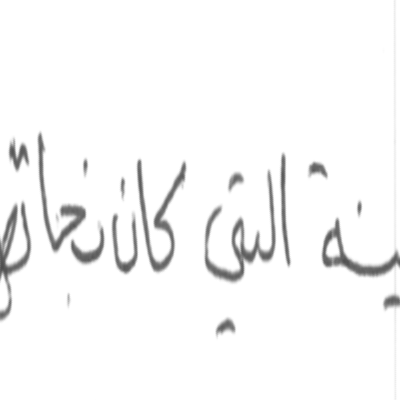 ينة التي كان نجا